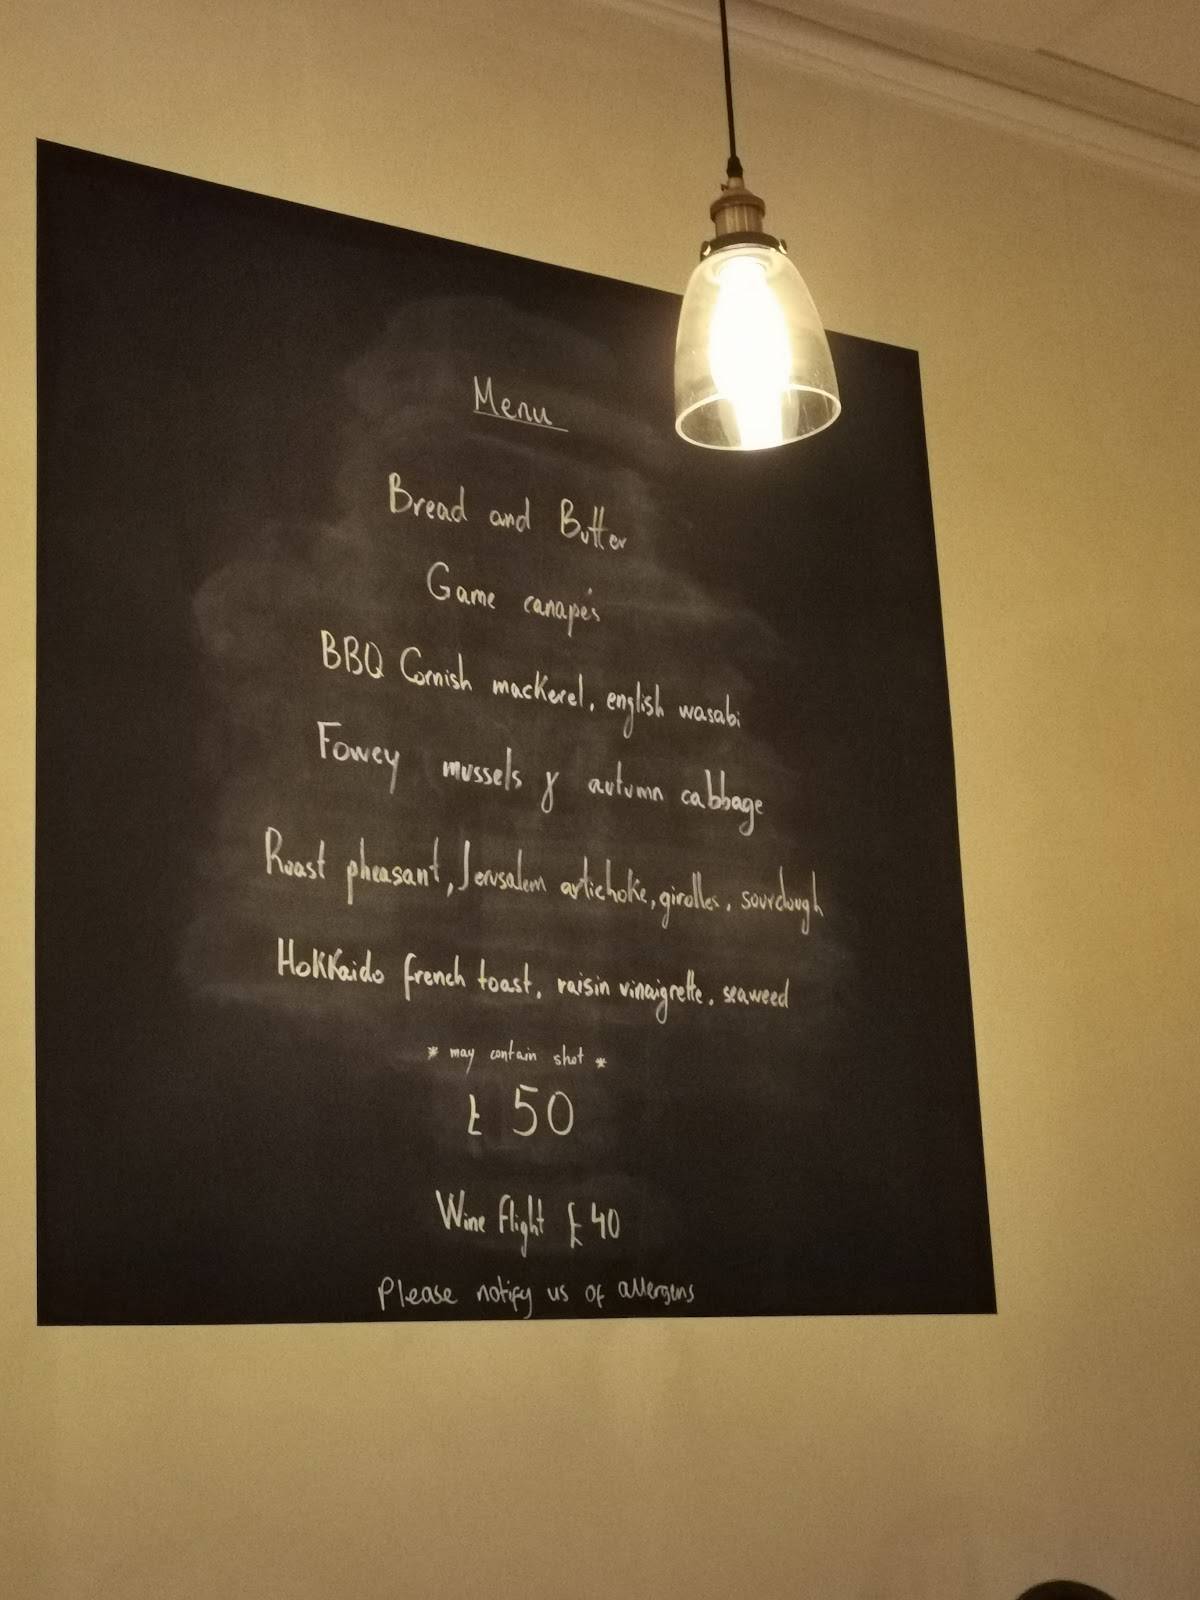 Menu
Bread and Butter
Game canapés
BBQ Cornish mackerel, english wasabi
Fowey mussels & autumn cabbage
Roast pheasant, Jerusalem artichoke, girolles, sourdough
Hokkaido french toast, raisin vinaigrette, seaweed
* may contain shot *
£ 50
Wine flight £40
Please notify us of allergens